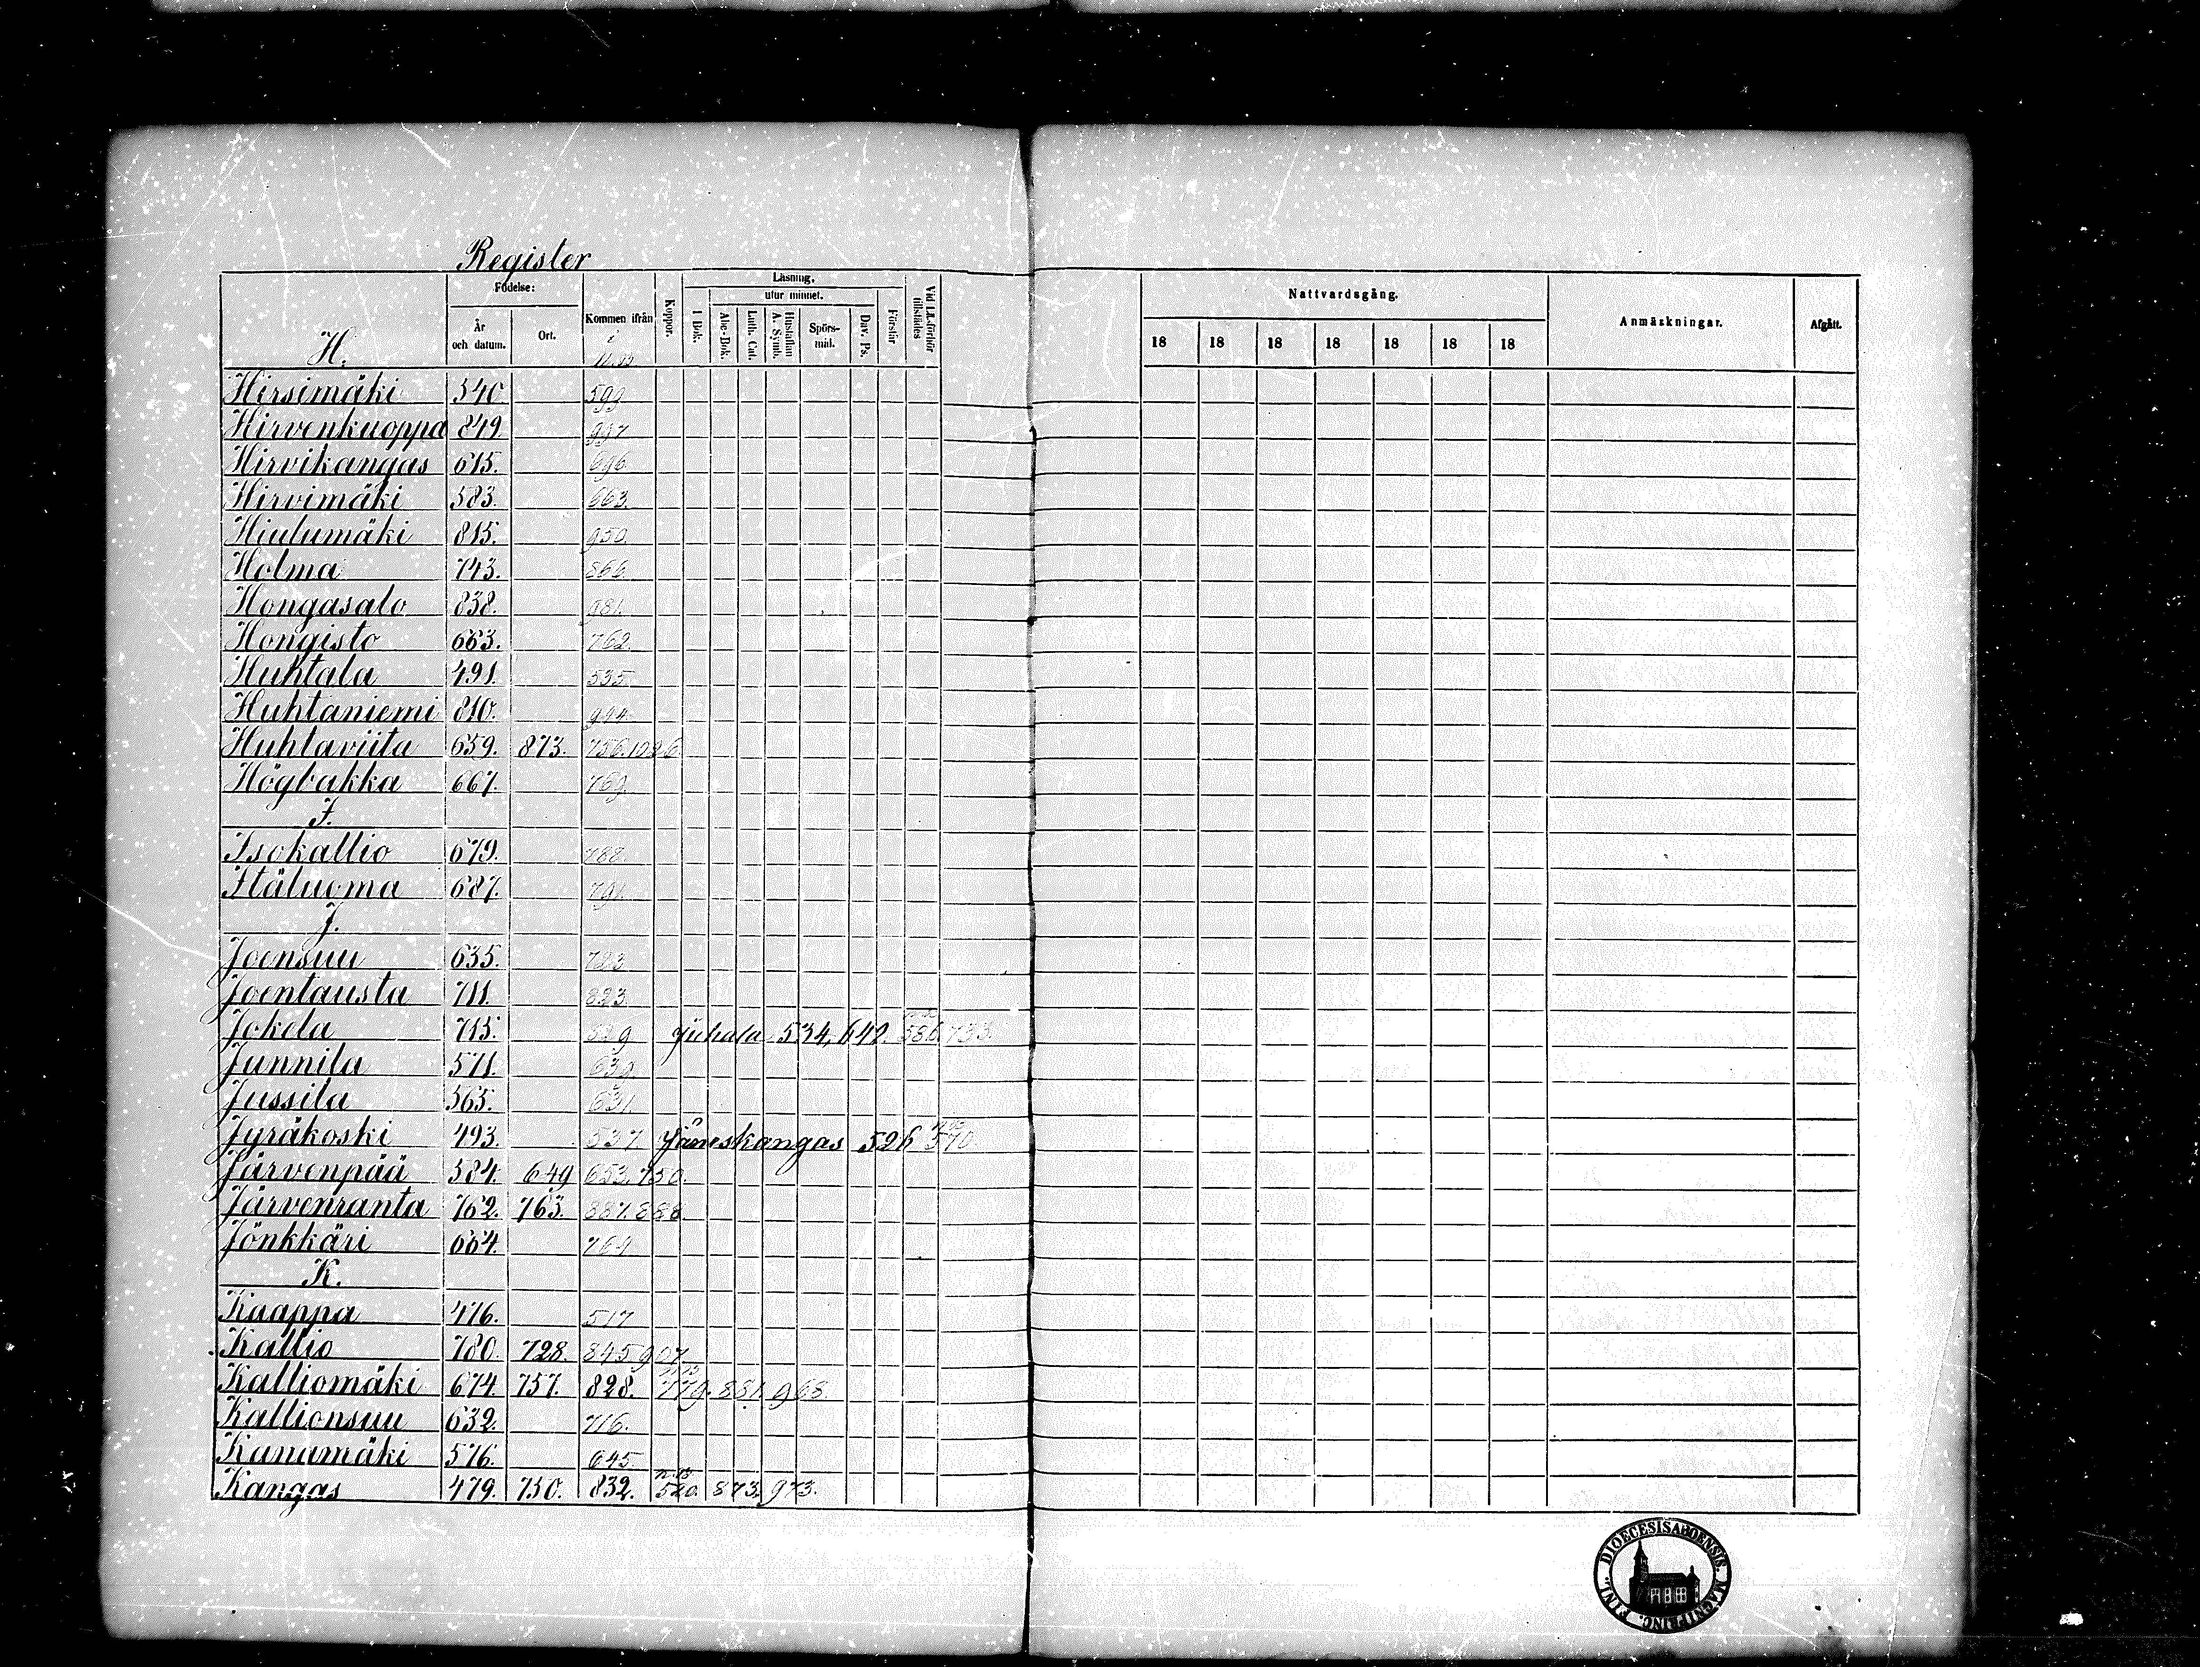 Register
Födelse:
År och datum.
Ort.
Kommen ifrån
Koppor.
Läsning,
utur minnet.
I Bok.
Abc-Bok.
Luth. Cat.
Hustaflan A. Symb.
Spörs-mål.
Dav. Ps.
Förstår
Vid Läsförhör tillstädes
Nattvardsgång.
18 18 18 18 18 18 18
Anmäskningar.
Afgått.
H.
Hirsimäki 540 599
Hirvenkuoppa 849. 997
Hirvikangas 615. 696.
Hirvimäki 583. 663.
Hiulumäki 815. 950.
Holma 743. 866.
Hongasalo 838. 981.
Hongisto 663. 762.
Huhtala 491. 535.
Huhtaniemi 810. 944.
Huhtaviita 659. 873. 756. 1026
Högbakka 667. 769.
I.
Isokallio 679. 788.
Itäluoma 687. 791.
J.
Joensuu 635. 723
Joentausta 711. 823.
Jokela 715. Juhala 534, 642. 586. 733.
Junnila 571. 639.
Jussila 565. 631.
Jyräkoski 493. 537 Jäneskangas 526 570
Järvenpää 584. 649 653. 750.
Järvenranta 762. 763. 887. 888
Jönkkäri 664. 764
K.
Kaappa 476. 517
Kallio 780. 728. 845 907
Kalliomäki 674. 757. 828. 779. 881. 968.
Kallionsuu 632. 716.
Kanamäki 576. 645.
Kangas 479. 750. 832. 520. 873. 973.
DIOECESIS ABOENSIS. MAGNI PRINC. FINL.